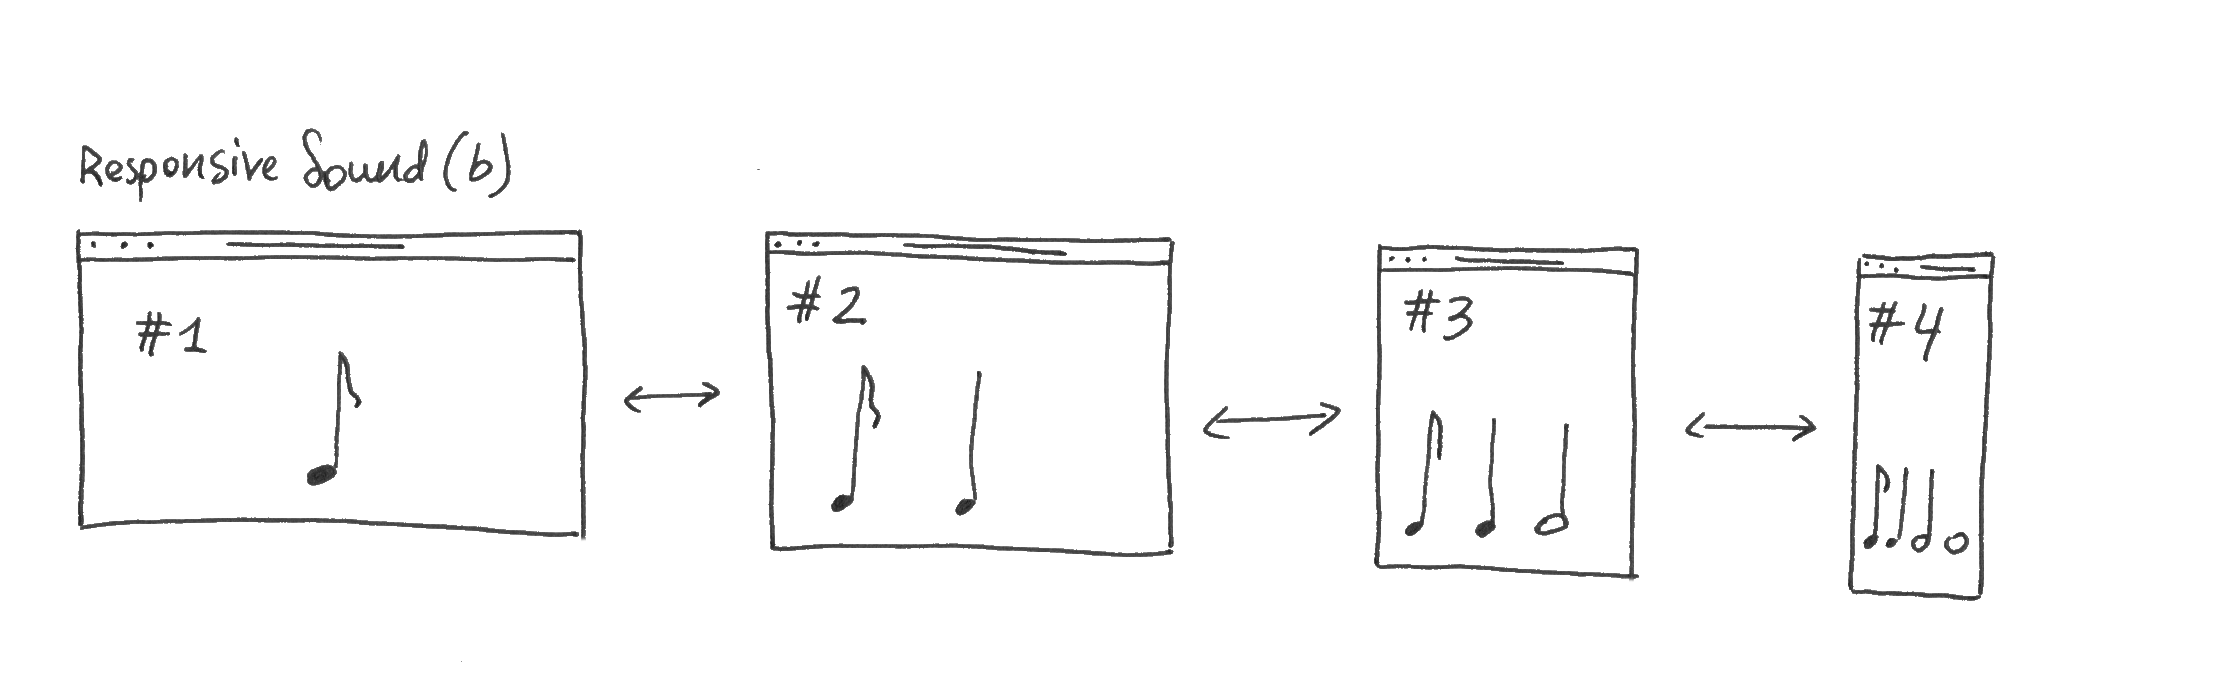 Responsive Sound (b)
#1
#2
#3
#4